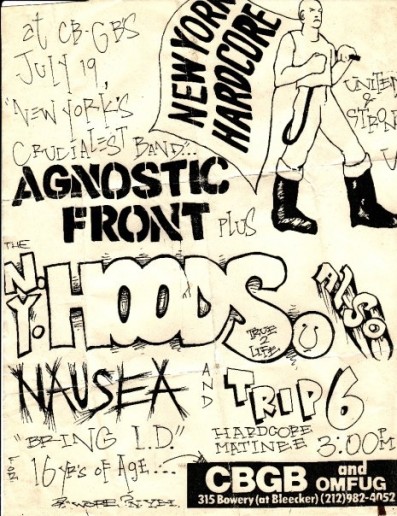 at CB·GBS
JULY 19,
"NEW YORK'S
CRUCIALEST BAND...
NEW YORK
HARDCORE
UNITED
&
STRONG
AGNOSTIC
FRONT PLUS
THE
N.Y. HOODS.
TRUE
2
LIFE
ALSO
NAUSEA
AND
TRIP 6
"BRING I.D."
FOR
16 YR'S OF AGE...
HARDCORE
MATINEE 3:00 PM
CBGB and
OMFUG
315 Bowery (at Bleecker) (212)982-4052